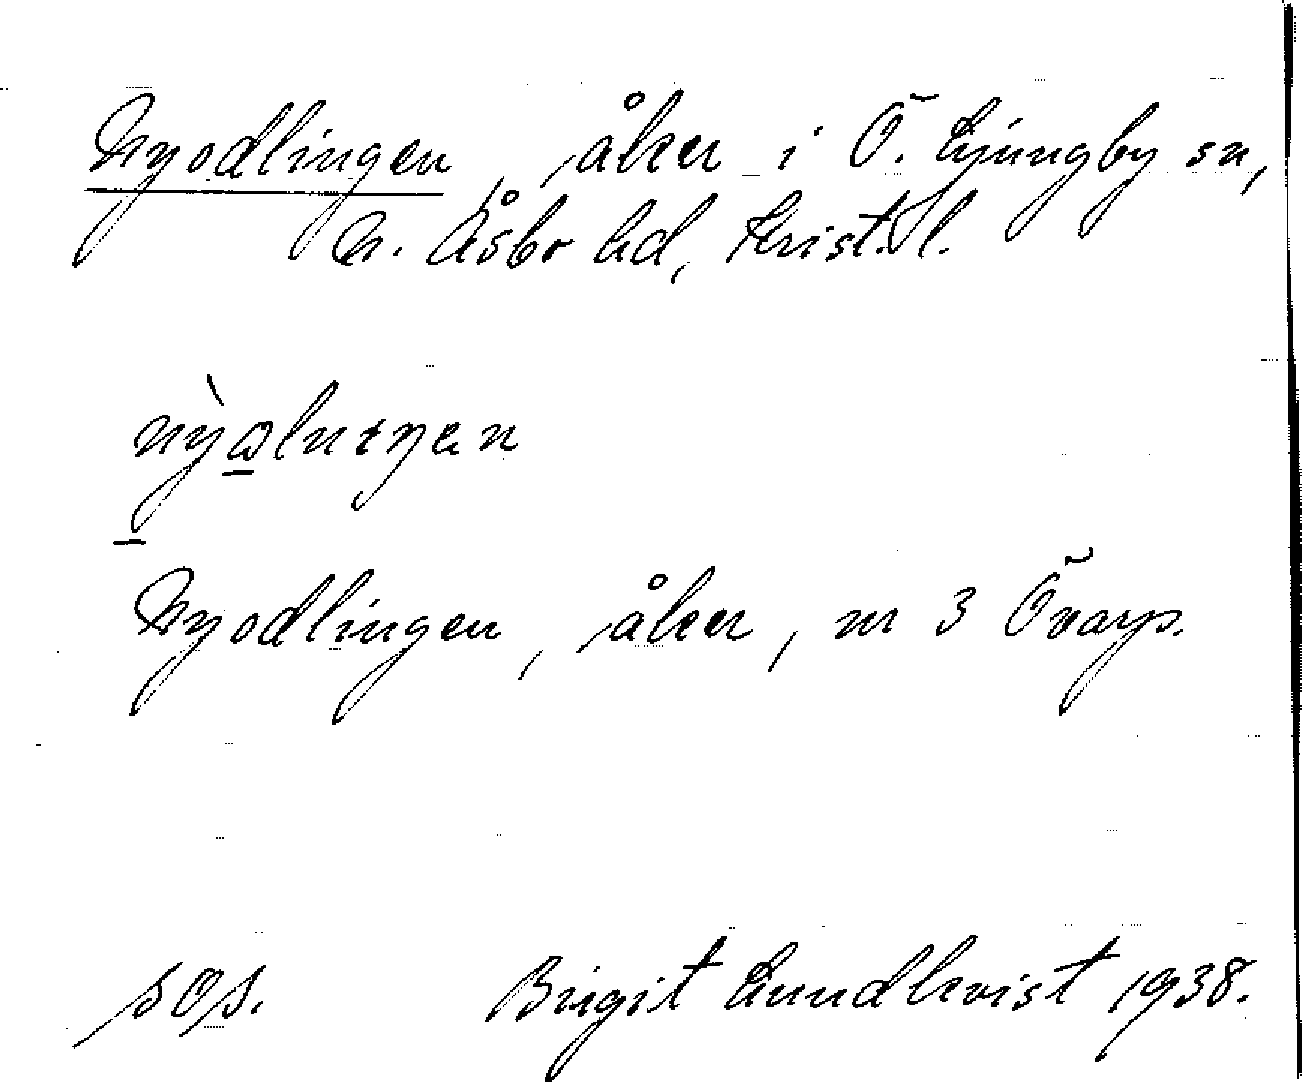 Nyodlingen, åker i Ö. Ljungby sn,
N. Åsbo hd, Krist. l.
nỳωlnıŋan
Nyodlingen, åker, nr 3 Övarp.
sos. Birgit Lundkvist 1938.